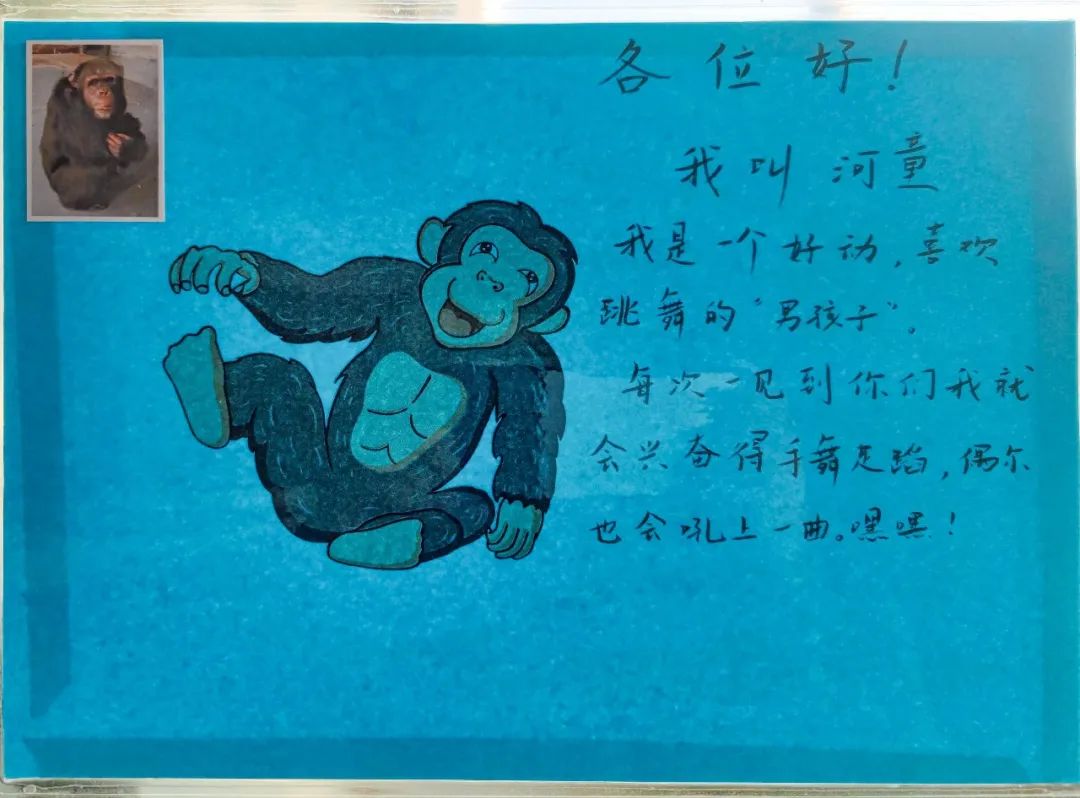 各位好！
我叫河童
我是一个好动，喜欢
跳舞的“男孩子”。
每次一见到你们我就
会兴奋得手舞足蹈，偶尔
也会吼上一曲。嘿嘿！